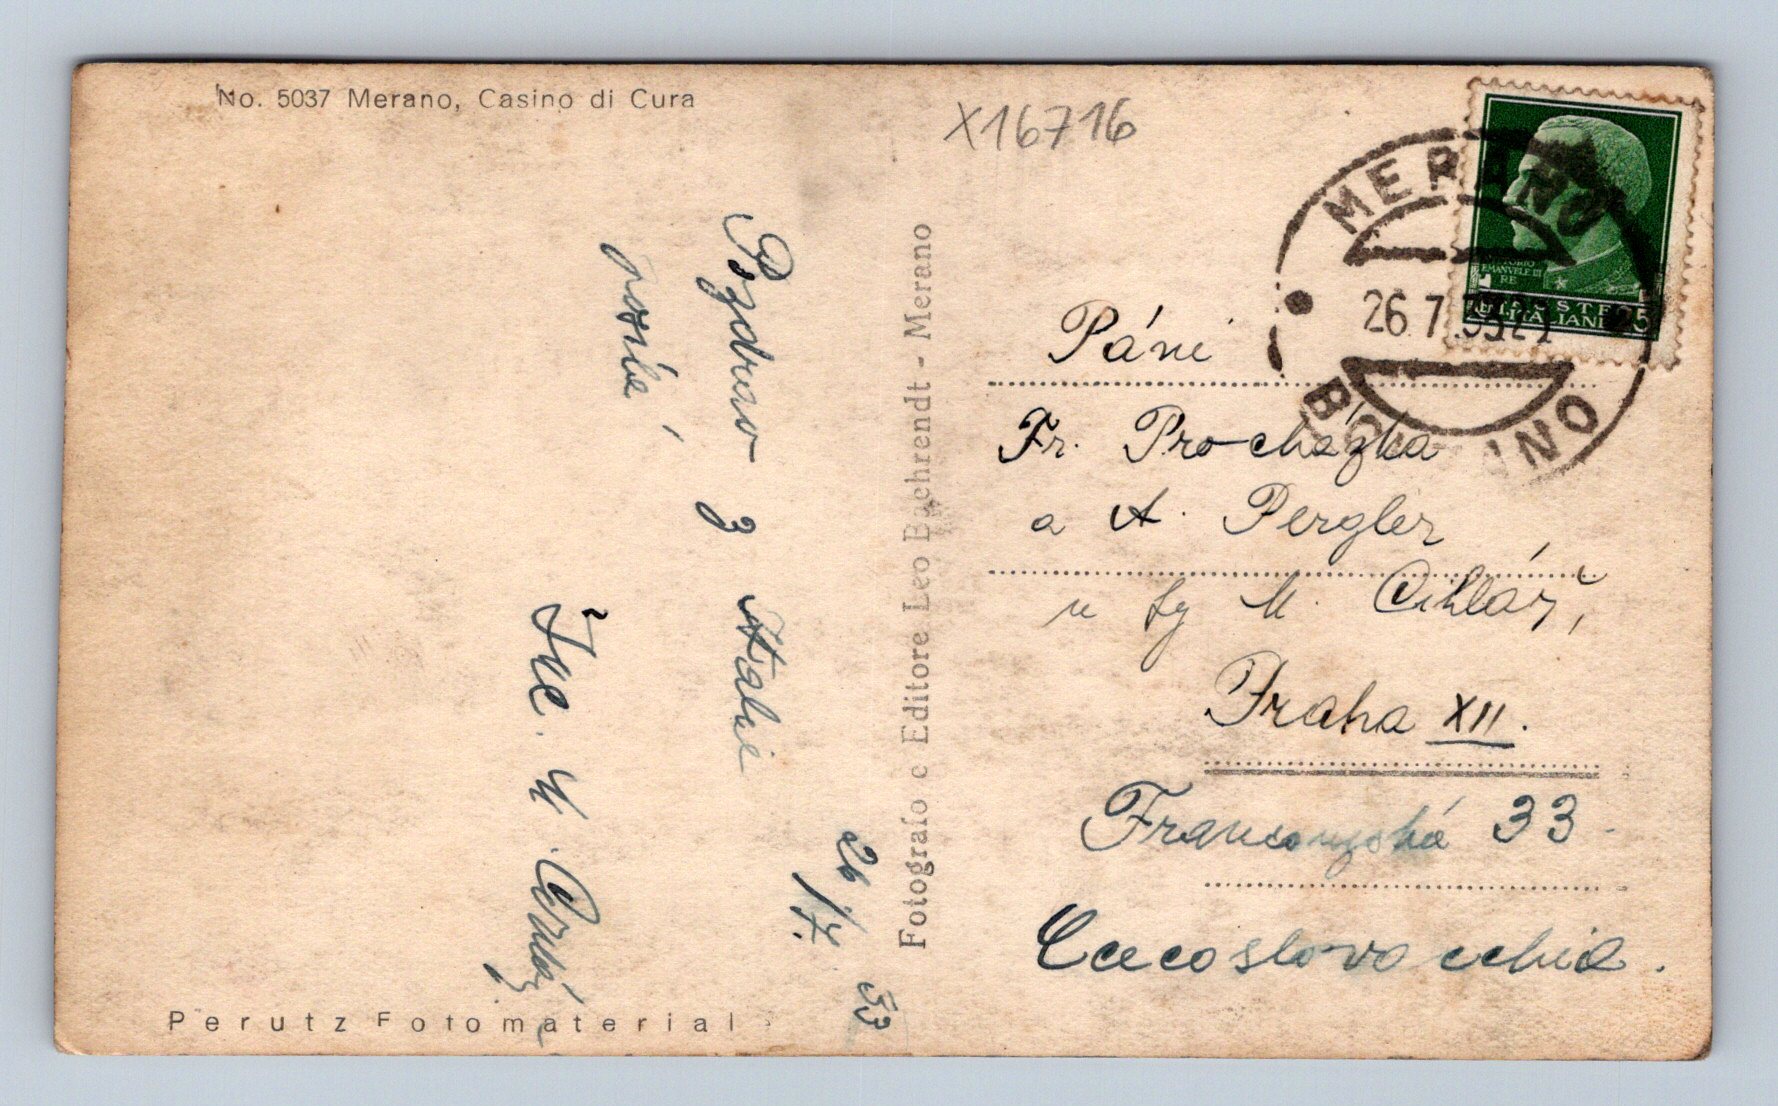 No. 5037 Merano, Casino di Cura
X16716
MERANO
26.7.33
BOLZANO
VITTORIO
EMANVELE III
RE
POSTE
ITALIANE
25
Pozdrav z Italie
26/7. 33
Fotografo e Editore Leo Baehrendt - Merano
Páni
Fr. Procházka
a A. Pergler
u fy M. Cihlář,
Praha XII.
Francouzská 33
Cecoslovacchia.
Perutz Fotomaterial